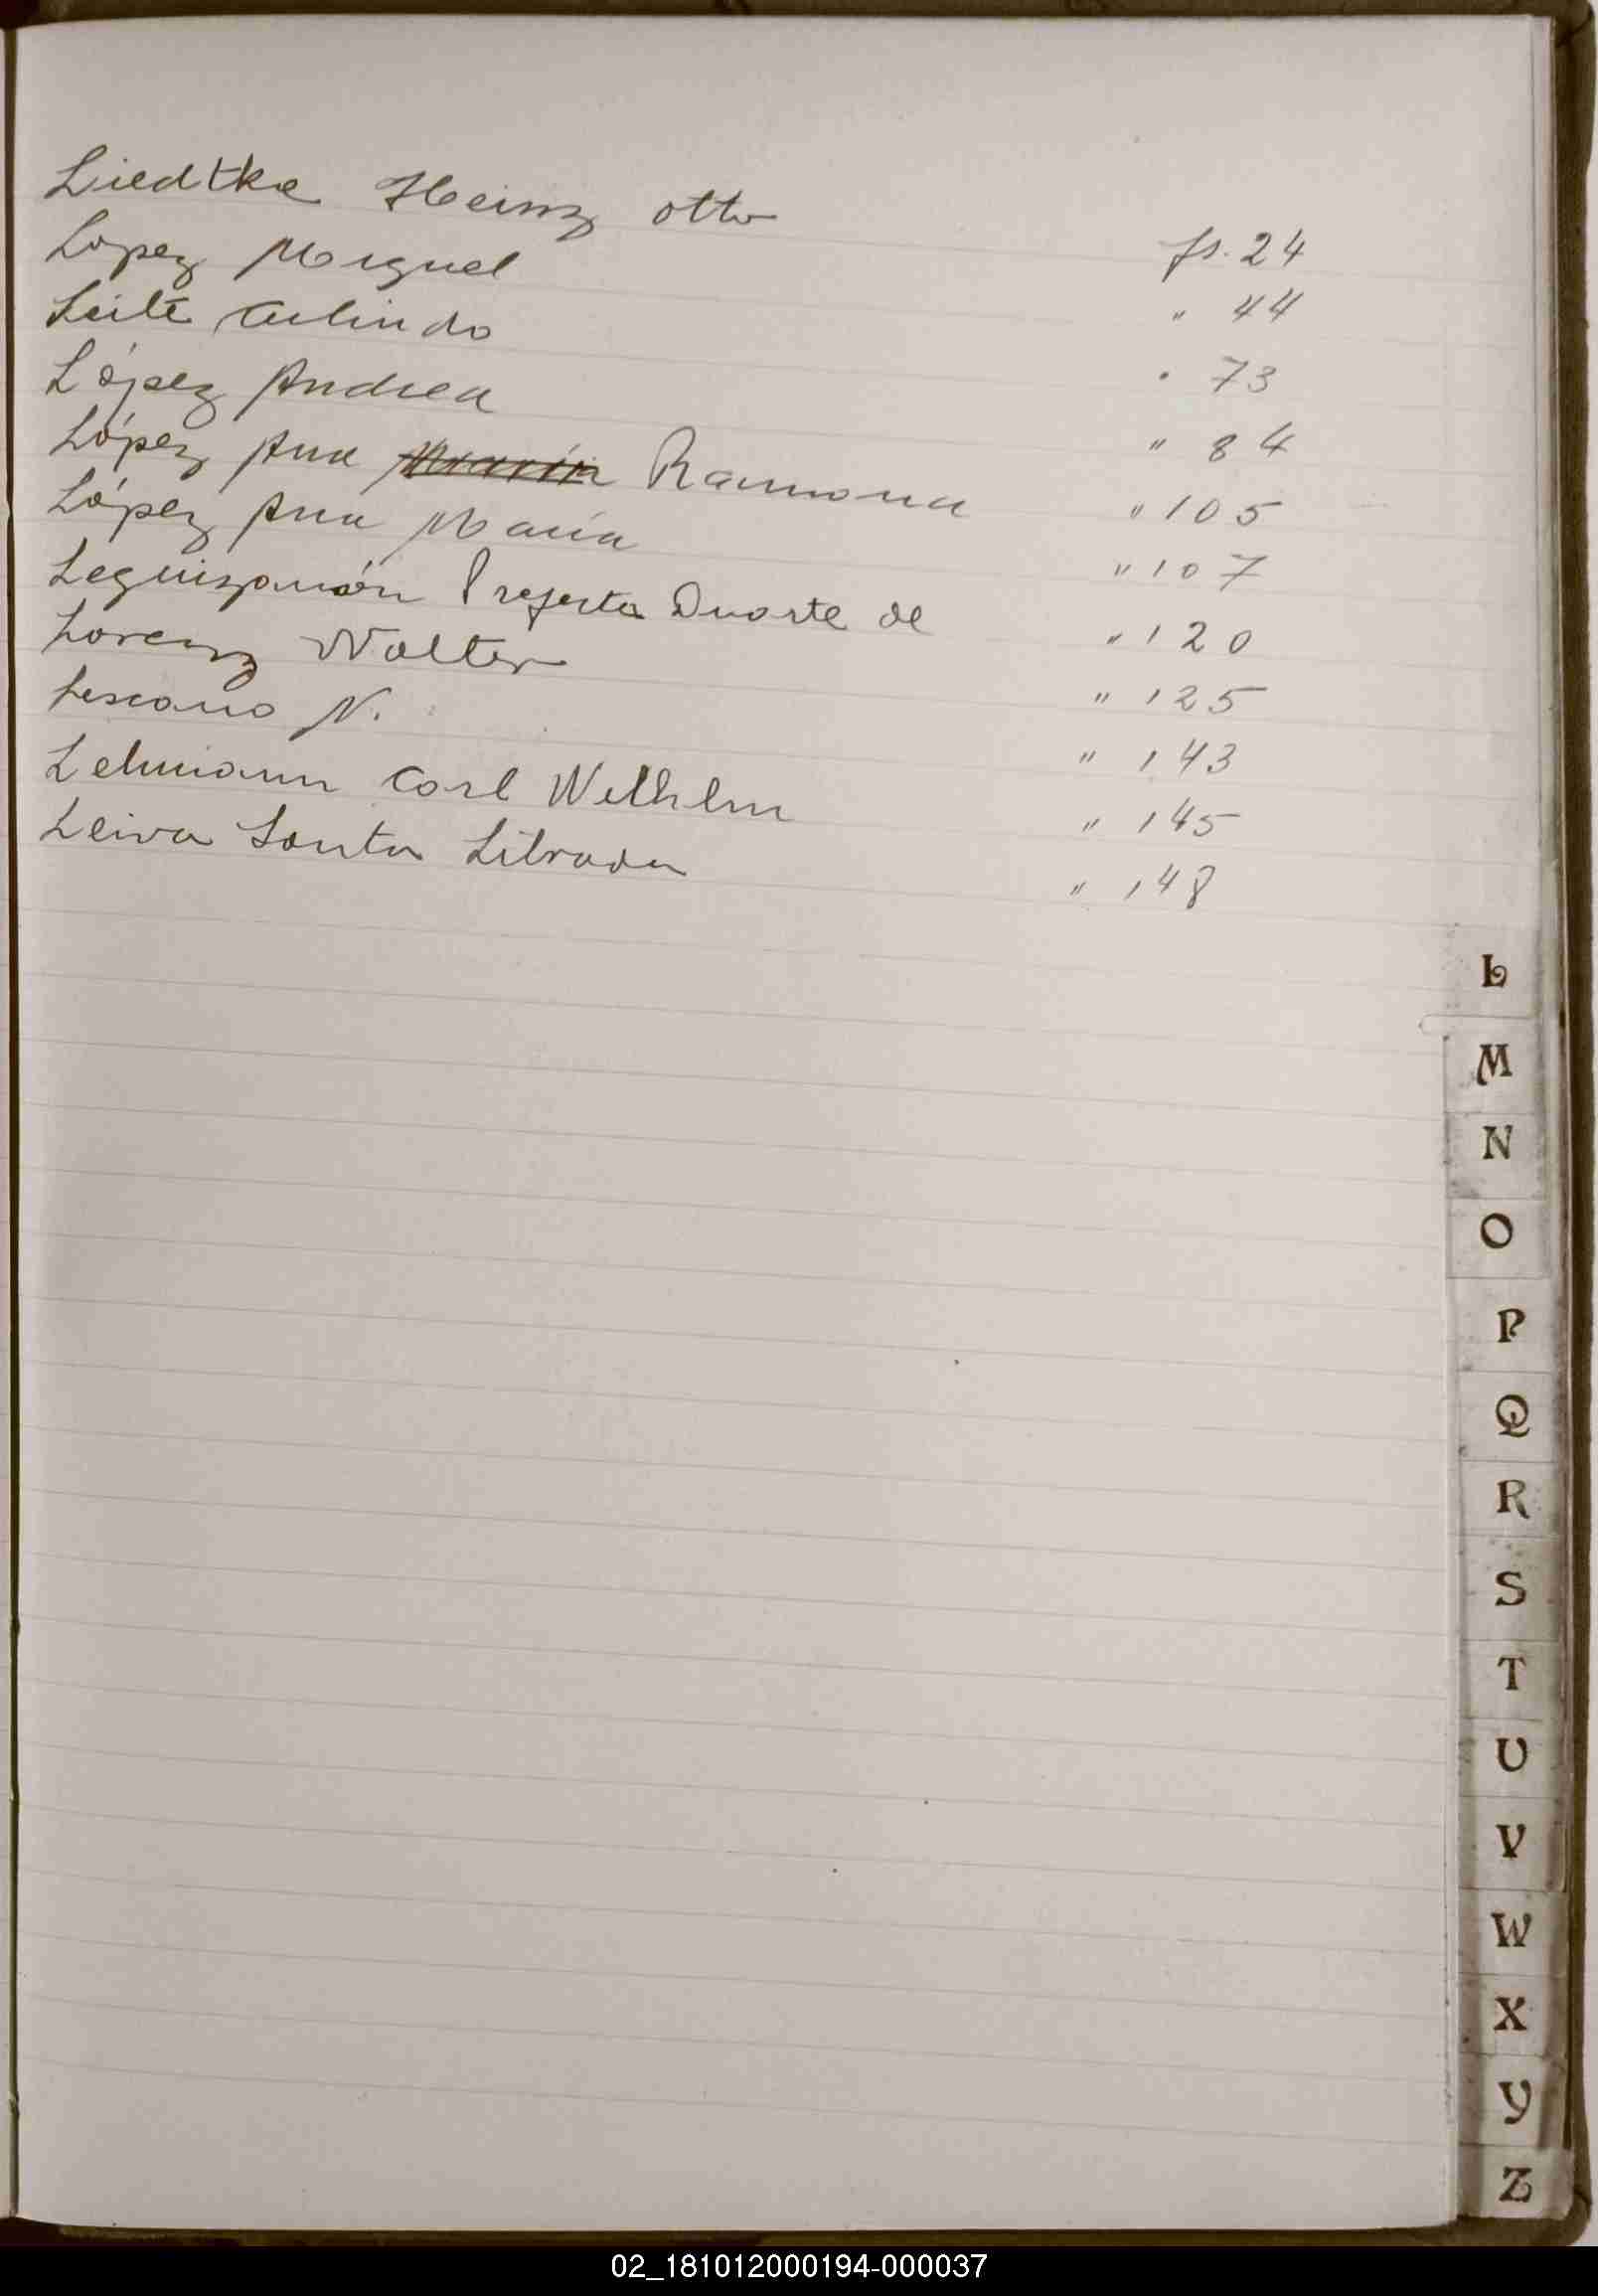 Liedtke Heinz Otto fs. 24
López Miguel " 44
Leite Arlindo " 73
López Andrea " 84
López Ana María Ramona " 105
López Ana María " 107
Leguizamón Prejecta Duarte de " 120
Lorenz Walter " 125
Lescano N. " 143
Lehmann Carl Wilhelm " 145
Leiva Santa Librada " 148
L
M
N
O
P
Q
R
S
T
U
V
W
X
Y
Z
02_181012000194-000037